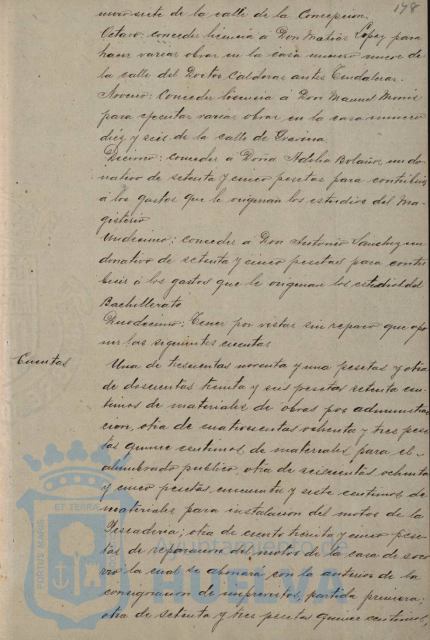 178
mero siete de la calle de la Concepcion.
Octavo: conceder licencia á Don Matias Lopez para
hacer varias obras en la casa número nueve de
la calle del Doctor Calderas antes
Noveno: Conceder licencia á Don Manuel
para ejecutar varias obras en la casa número
diez y seis de la calle de Gravina
Decimo: conceder á Doña Adelia Bolaños un do-
nativo de setenta y cinco pesetas para contribuir
á los gastos que le originan los estudios del Ma-
gisterio
Undecimo: conceder á Don Antonio Sanchez un
donativo de setenta y cinco pesetas para contri
buir á los gastos que le originan los estudios del
Bachillerato
Duodecimo: Tener por vistas sin reparo que opo
ner las siguientes cuentas
Cuentas
Una de trescientas noventa y una pesetas y otra
de doscientas treinta y seis pesetas setenta cen-
timos de materiales de obras por administra
cion, otra de cuatrocientas ochenta y tres pese
tas quince centimos de materiales para el a-
alumbrado publico, otra de seiscientas ochenta
y cinco pesetas cincuenta y siete centimos de
materiales para instalacion del motor de la
Pescaderia; otra de ciento treinta y cinco pese-
tas de reparacion del motor de la casa de soco
rro la cual se abonará con la anterior de la
consignacion de imprevistos, partida primera;
otra de setenta y tres pesetas quince centimos,
PORTUS MARIS
ET TERRAE
Ayuntamiento de
HUELVA